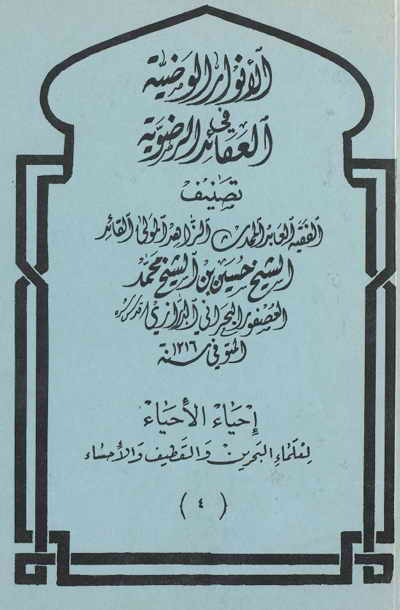 الأنوار الوضية
في
العقائد الرضوية
تصنيف
الفقيه العابر المحدث الزاهد المولى القائد
الشيخ حسين بن الشيخ محمد
العصفور البحراني الدرازي قدس سره
المتوفى سنة ١٢١٦
إحياء الأحياء
لعلماء البحرين والقطيف والأحساء
(٤)